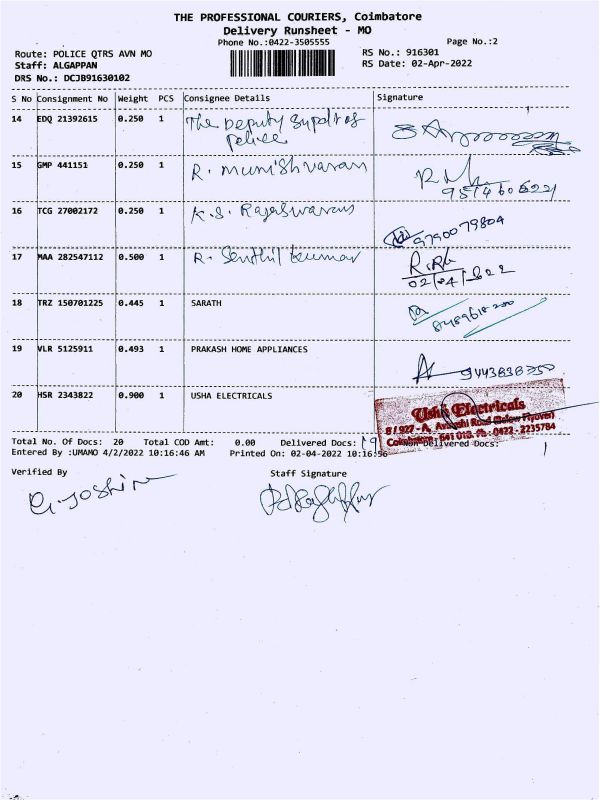 THE PROFESSIONAL COURIERS, Coimbatore
Delivery Runsheet - MO
Phone No.:0422-3505555 Page No.:2
Route: POLICE QTRS AVN MO RS No.: 916301
Staff: ALGAPPAN RS Date: 02-Apr-2022
DRS No.: DCJB91630102
S No Consignment No Weight PCS Consignee Details Signature
14 EDQ 21392615 0.250 1 The Deputy Supdt of
police
15 GMP 441151 0.250 1 R. Munishvaran
16 TCG 27002172 0.250 1 K.S. 9790079804
17 MAA 282547112 0.500 1 R. Senthil kumar
02/04/2022
18 TRZ 150701225 0.445 1 SARATH
19 VLR 5125911 0.493 1 PRAKASH HOME APPLIANCES
20 HSR 2343822 0.900 1 USHA ELECTRICALS
Usha Electricals
8 / 927 - A, Avinashi Road (Below Flyover)
Coimbatore - 641 018. Ph : 0422 - 2235784
Total No. Of Docs: 20 Total COD Amt: 0.00 Delivered Docs: 19
Non-Delivered Docs: 1
Entered By :UMAMO 4/2/2022 10:16:46 AM Printed On: 02-04-2022 10:16:56
Verified By Staff Signature